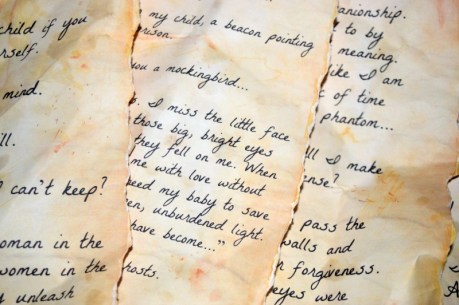 child if you
rself.
mind.
ll.
I can't keep?
oman in the
women in the
y unleash
my child, a beacon pointing
rison.
you a mockingbird...
. I miss the little face
those big, bright eyes
they fell on me. When
me with love without
need my baby to save
en, unburdened light.
have become..."
hosts.
anionship.
to by
meaning.
ike I am
of time
phantom...
ll I make
nse?
pass the
walls and
forgiveness.
eyes were